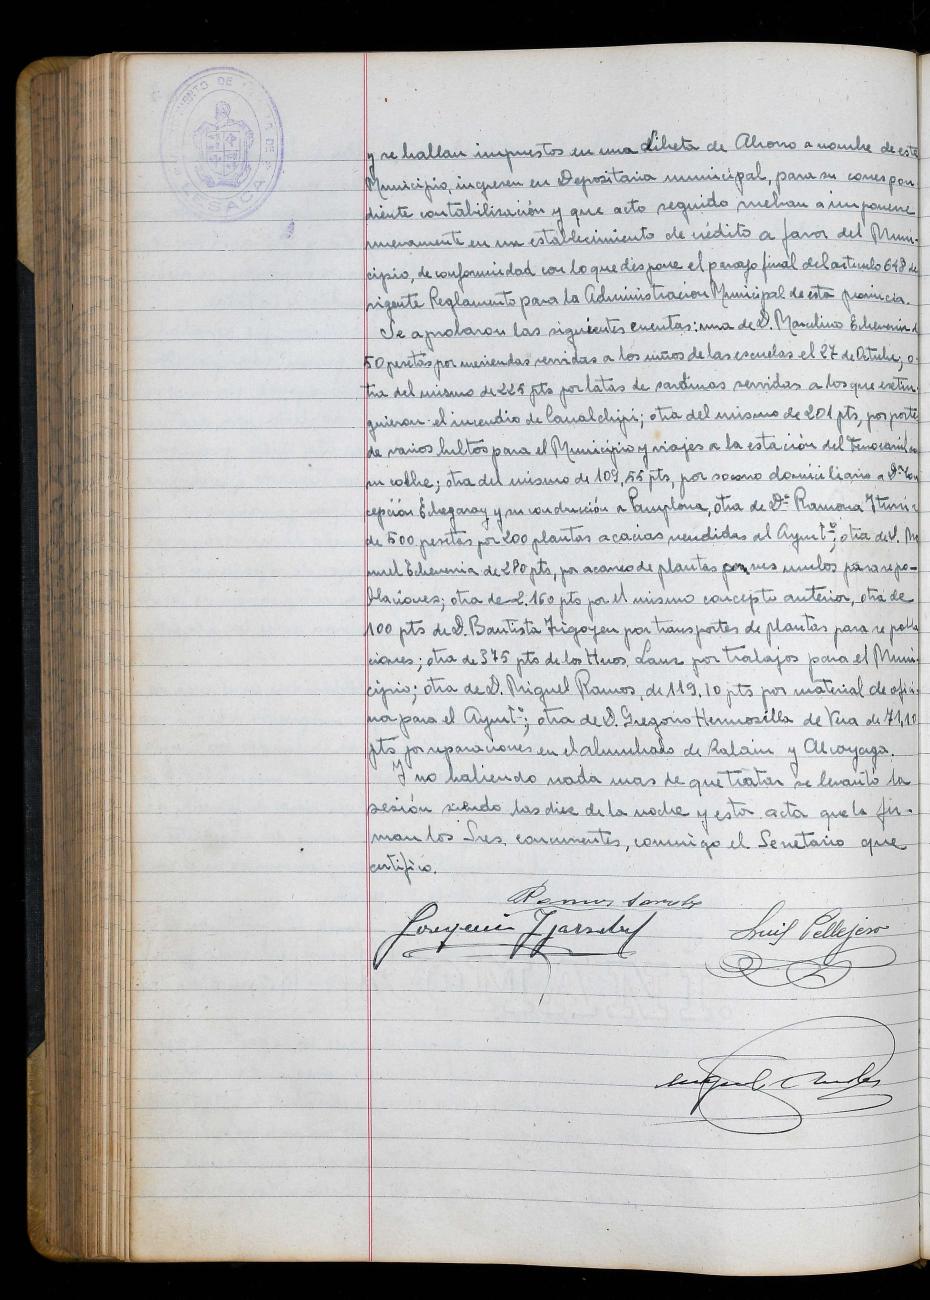 AYUNTAMIENTO DE LA VILLA DE
LESACA
y se hallan impuestos en una Libreta de Ahorro a nombre de este
Municipio, ingresen en Depositaria municipal, para su correspon
diente contabilización y que acto seguido vuelvan a imponerse
nuevamente en un establecimiento de crédito a favor del Muni-
cipio, de conformidad con lo que dispone el parrafo final del articulo 648 del
vigente Reglamento para la Administracion Municipal de esta provincia.
Se aprobaron las siguientes cuentas: una de D. Marcelino Echeverria de
50 pesetas por meriendas servidas a los niños de las escuelas el 27 de Octubre; o-
tra del mismo de 225 pts por latas de sardinas servidas a los que extin-
guieron el incendio de ; otra del mismo de 201 pts, por porte
de varios bultos para el Municipio y viajes a la estación del Ferrocarril en
su coche; otra del mismo de 109,55 pts, por socorro domiciliario a Dª Con
cepción Echegaray y su conducción a Pamplona, otra de Dª Ramona
de 500 pesetas por 200 plantas acacias vendidas al Ayuntº; otra de D. Ma
nuel Echeverria de 280 pts, por acarreo de plantas para repo-
blaciones; otra de 2.160 pts por el mismo concepto anterior, otra de
100 pts de D. Bautista Irigoyen por transportes de plantas para repobla
ciones; otra de 375 pts de los Hnos. Lanz por trabajos para el Muni-
cipio; otra de D. Miguel Ramos, de 119,10 pts por material de ofici-
na para el Ayuntº; otra de D. Gregorio Hermosilla de Vera de 71,10
pts por reparaciones en el alumbrado de Zalain y Alcayaga.
Y no habiendo nada mas de que tratar se levantó la
sesión siendo las diez de la noche y esta acta que la fir-
man los Sres. concurrentes, conmigo el Secretario que
certifico.
Joaquin
Luis Pellejero